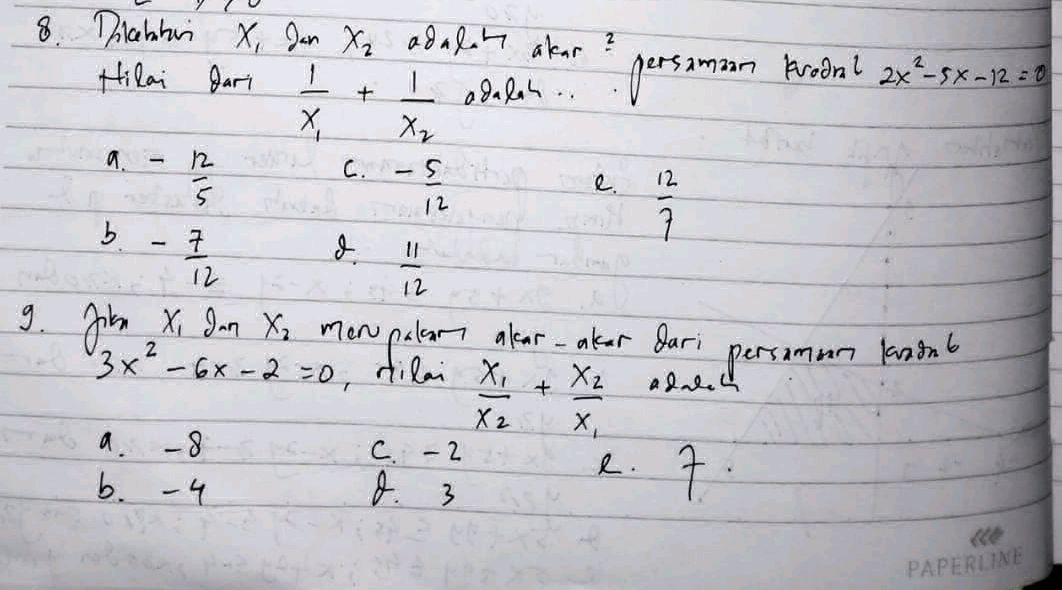 8. Diketahui X₁ dan X₂ adalah akar² persamaan kuadrat 2x² - 5x - 12 = 0
Nilai dari 1/X₁ + 1/X₂ adalah...
a. - 12/5 c. - 5/12 e. 12/7
b. - 7/12 d. 11/12
9. Jika X₁ dan X₂ merupakan akar-akar dari persamaan kuadrat
3x² - 6x - 2 = 0, Nilai X₁/X₂ + X₂/X₁ adalah
a. -8 c. -2 e. 7.
b. -4 d. 3
PAPERLINE